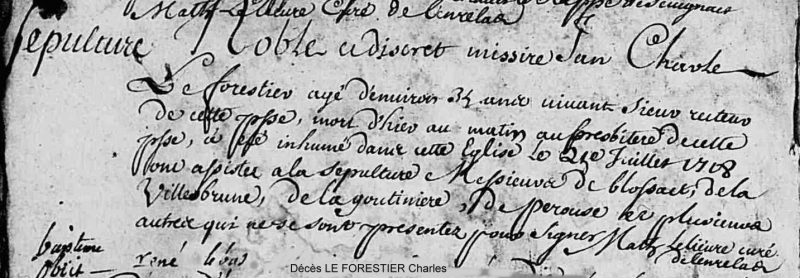 Math Lelieure Curé de lenrelas
Sepulture Noble et discret missire Jan Charle
Le forestier agé d'enuiron 34 ans viuant sieur recteur
de cette psse, mort d'hier au matin au presbitere de cette
psse, a été inhumé dans cette Eglise le 21e Juillet 1718
ont assistez a la sepulture Messieurs de blossac, de la
Villebrune, de la goutiniere, de perouse et plusieurs
autres qui ne se sont presentez pour signer Math Lelieure curé
de lenrelas
baptême rené lebas
obiit
Décès LE FORESTIER Charles